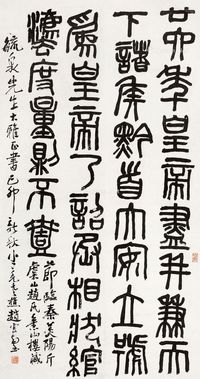 廿六年皇帝盡并兼天
下諸侯黔首大安立號
為皇帝乃詔丞相狀綰
灋度量則不壹
節臨秦美陽斤
虞山趙氏舊山樓藏
毓泉先生大雅正書己卯新秋 趙雲壑